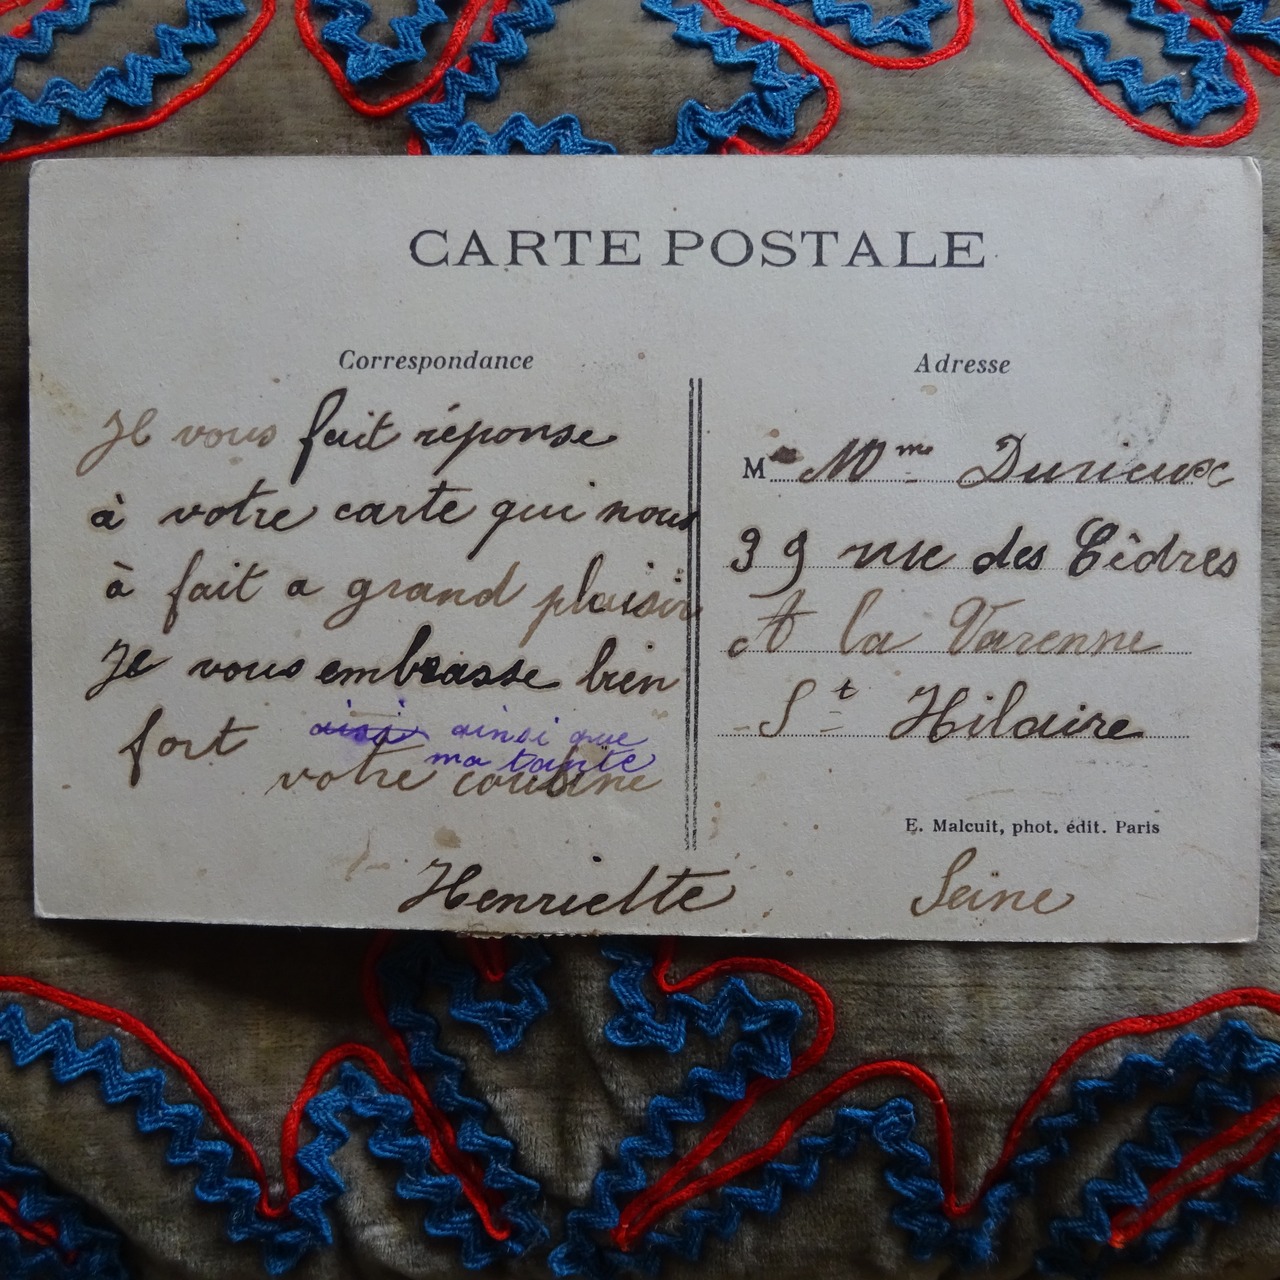 CARTE POSTALE
Correspondance
Je vous fait réponse
à votre carte qui nous
à fait a grand plaisir
Je vous embrasse bien
fort ainsi ainsi que
ma tante
votre cousine
Henriette
Adresse
M Mme Durieux
39 rue des Cèdres
A la Varenne
St Hilaire
E. Malcuit, phot. édit. Paris
Seine